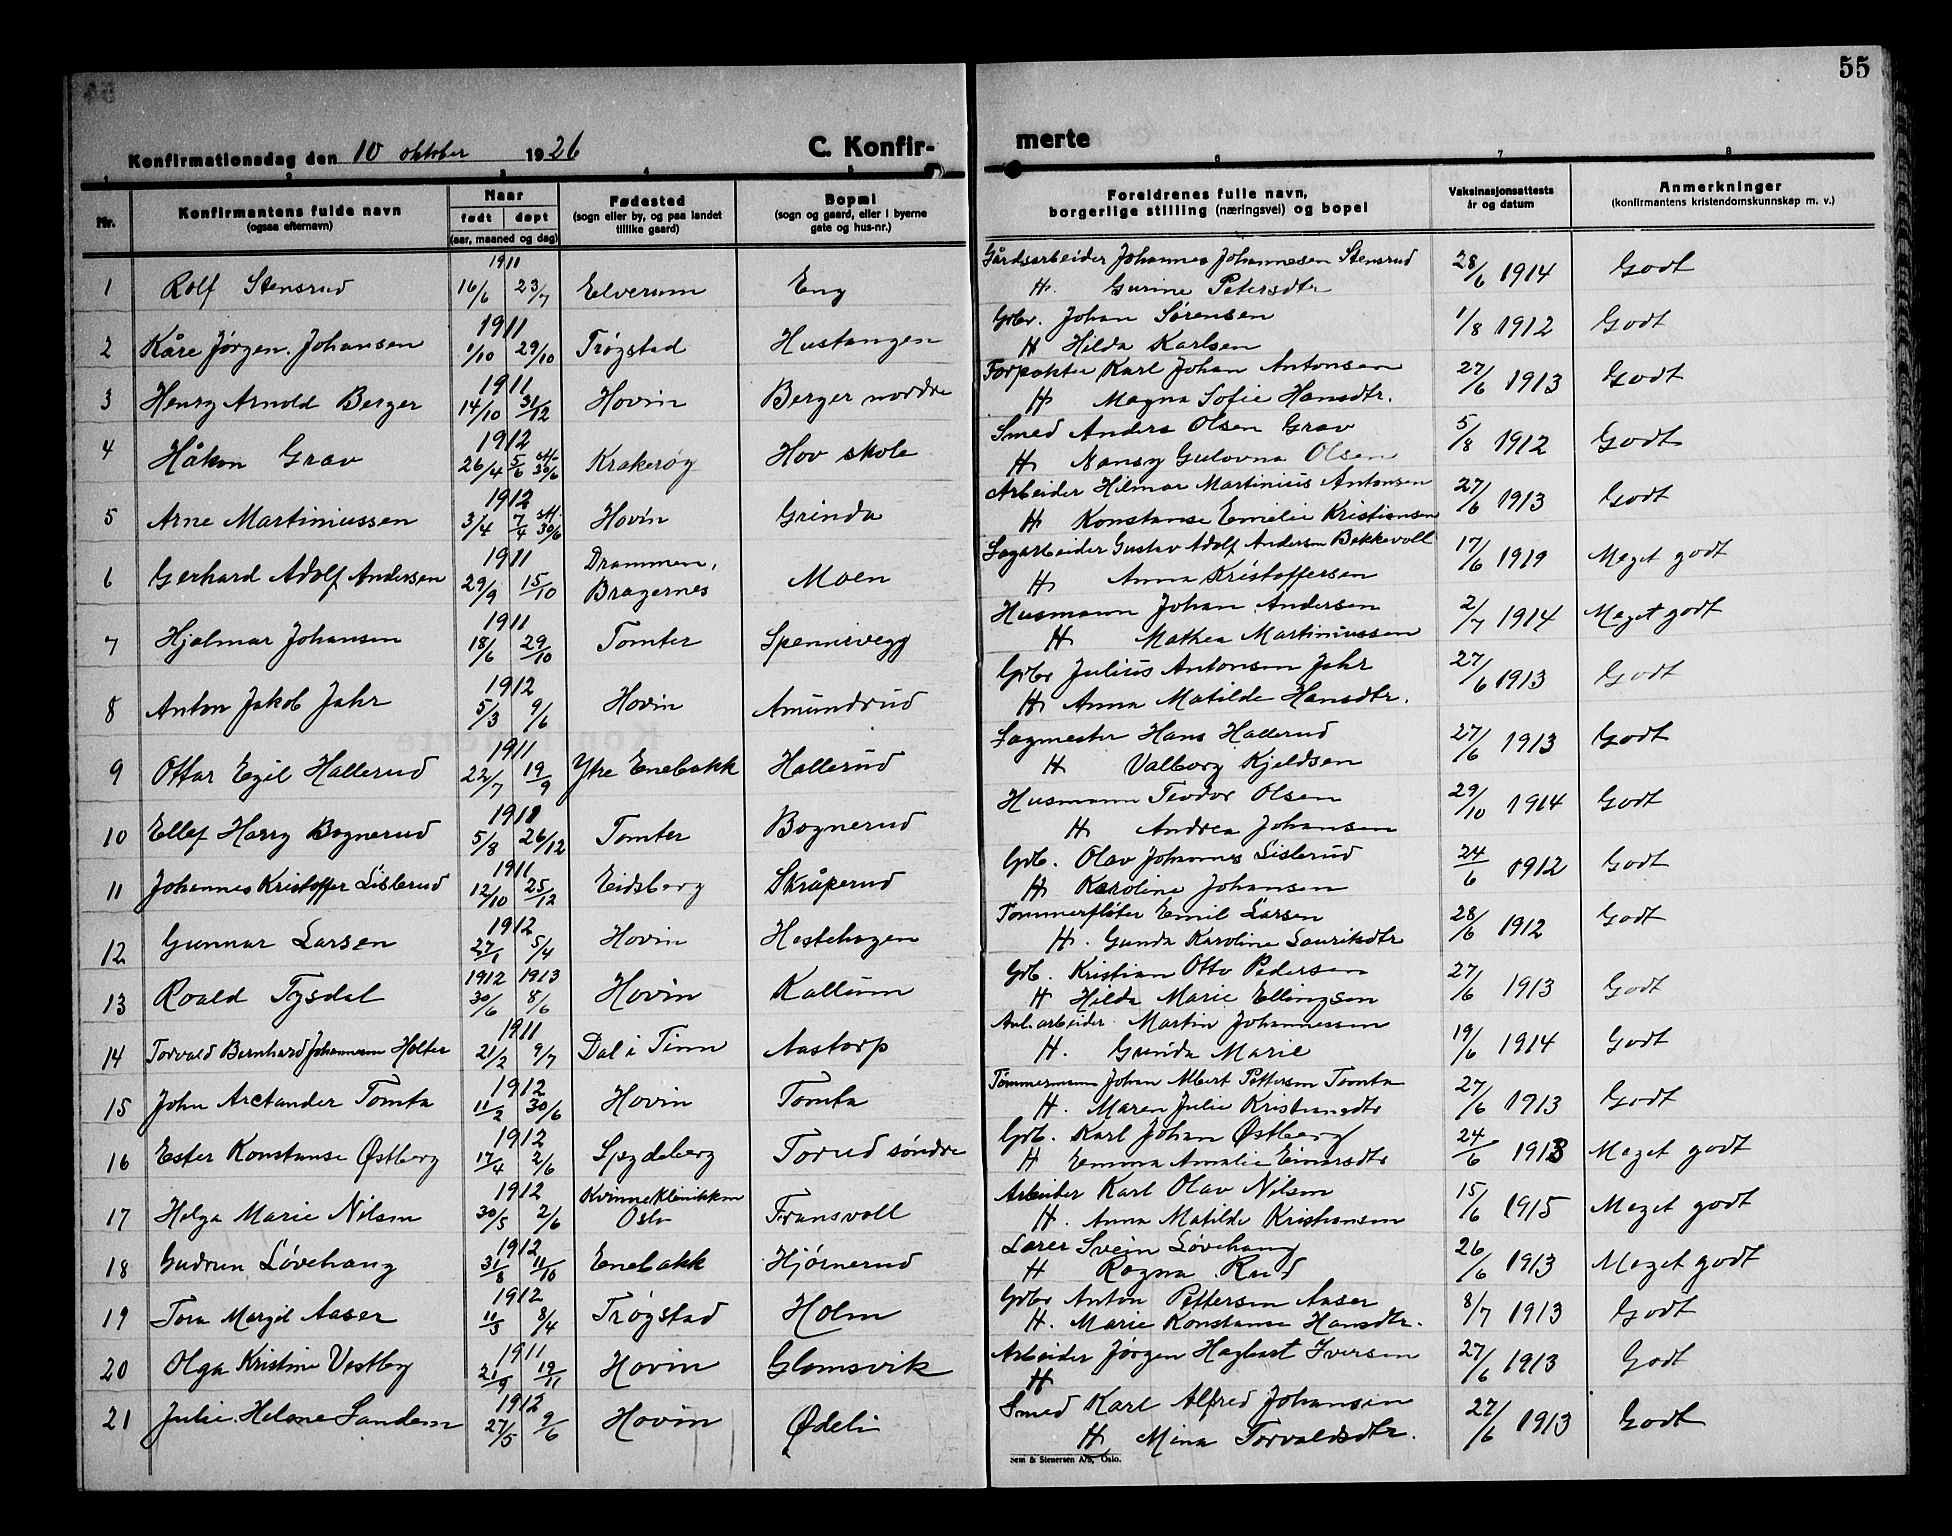 55
Konfirmationsdag den 10 oktober 1926
C. Konfir-
merte
1 2 3 4 5 6 7 8
Nr.
Konfirmantens fulde navn
(ogsaa efternavn)
Naar
født døpt
(aar, maaned og dag)
Fødested
(sogn eller by, og paa landet
tillike gaard)
Bopæl
(sogn og gaard, eller i byerne
gate og hus-nr.)
Foreldrenes fulle navn,
borgerlige stilling (næringsvei) og bopel
Vaksinasjonsattests
år og datum
Anmerkninger
(konfirmantens kristendomskunnskap m. v.)
1911 Gårdsarbeider Johannes Johannesen Stensrud
1 Rolf Stensrud 16/6 23/7 Elverum Eng H. Gurine Petersdtr 28/6 1914 Godt
1911 Grbr. Johan Sørensen
2 Kåre Jørgen Johansen 1/10 29/10 Trøgstad Hustangen H Hilda Karlsen 1/8 1912 Godt
1911 Forpakter Karl Johan Antonsen
3 Henry Arnold Berger 14/10 31/12 Hovin Berger nordre H Magna Sofie Hansdtr. 27/6 1913 Godt
1912 Smed Anders Olsen Grav
4 Håkon Grav 26/4 5/6 st. 30/6 Krakerøy Hov skole H Nansy Gulovna Olsen 5/8 1912 Godt
1912 Arbeider Hilmar Martinius Antonsen
5 Arne Martiniussen 3/4 7/4 st. 30/6 Hovin Grinda H Konstanse Emelie Kristiansen 27/6 1913 Godt
1911 Drammen, Sagarbeider Gustav Adolf Andersen Bekkevoll
6 Gerhard Adolf Andersen 29/9 15/10 Bragernes Moen H Anna Kristoffersen 17/6 1919 Meget godt
1911 Husmann Johan Andersen
7 Hjalmar Johansen 18/6 29/10 Tomter Spennirvegg H Mathea Martiniussen 2/7 1914 Meget godt
1912 Grbr Julius Antonsen Jahr
8 Anton Jakob Jahr 5/3 9/6 Hovin Amundrud H Anna Matilde Hansdtr. 27/6 1913 Godt
1911 Sagmester Hans Hallerud
9 Ottar Egil Hallerud 22/7 19/9 Ytre Enebakk Hallerud H Valborg Kjeldsen 27/6 1913 Godt
1911 Husmann Teodor Olsen
10 Ellef Harry Bognerud 5/8 26/12 Tomter Bognerud H Andrea Johansen 29/10 1914 Godt
1911 Grb. Olav Johannes Lislerud
11 Johannes Kristoffer Lislerud 12/10 25/12 Eidsberg Skråperud H Karoline Johansen 24/6 1912 Godt
1912 Tømmerfløter Emil Larsen
12 Gunnar Larsen 27/1 5/4 Hovin Hestehagen H. Gunda Karoline Lauritsdtr 28/6 1912 Godt
1912 1913 Grb. Kristian Otto Pedersen
13 Roald Tysdal 30/6 8/6 Hovin Kallum H Hilda Marie Ellingsen 27/6 1913 Godt
1911 Anl. arbeider Martin Johannessen
14 Torvald Bernhard Johannessen Holter 21/2 9/7 Dal i Tinn Aastorp H. Gunda Marie 19/6 1914 Godt
1912 Tømmermann Johan Albert Pettersen Tomta
15 John Arctander Tomta 11/2 30/6 Hovin Tomta H. Maren Julie Kristiansdtr 27/6 1913 Godt
1912 Grb. Karl Johan Østberg
16 Ester Konstanse Østberg 17/4 2/6 Spydeberg Torud søndre H Emma Amalie Einarsdtr 24/6 1913 Meget godt
1912 Kvinneklinikken Arbeider Karl Olav Nilsen
17 Helga Marie Nilsen 30/5 2/6 Oslo Fransvoll H. Anna Matilde Kristiansen 15/6 1915 Meget godt
1912 Lærer Svein Løvehaug
18 Gudrun Løvehaug 31/8 11/10 Enebakk Hjørnerud H Ragna Rud 26/6 1913 Meget godt
1912 Grbr Anton Pettersen Aaser
19 Tora Margit Aaser 11/3 8/4 Trøgstad Holm H. Marie Konstanse Hansdtr. 8/7 1913 Godt
1911 Arbeider Jørgen Hagbart Iversen
20 Olga Kristine Vestby 21/9 19/11 Hovin Glomsvik H 27/6 1913 Godt
1912 Smed Karl Alfred Johansen
21 Julie Helene Sandem 27/5 9/6 Hovin Ødeli H Mina Torvaldsdtr. 27/6 1913 Godt
Sem & Stenersen A/S, Oslo.